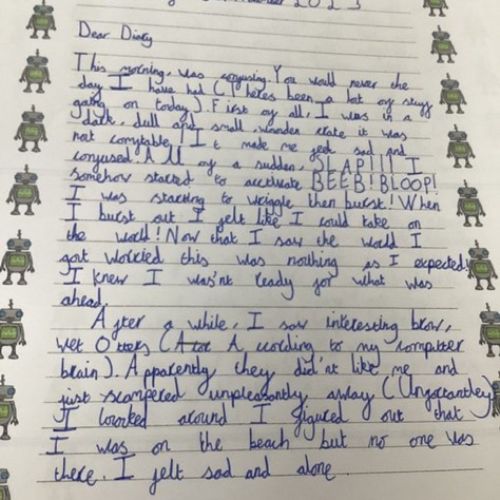 2023
Dear Diary
This morning, was confusing. You would never the
day I have had (Theres been a lot of stuff
going on today). First of all, I was in a
dark, dull and small, wooden crate it was
not comftable. It make me feel sad and
confused. All of a sudden, SLAP!!! I
somehow started to activate BEEB! BLOOP!
I was starting to wriggle then burst! When
I burst out I felt like I could take on
the world! Now that I saw the world I
got worried this was nothing as I expected.
I knew I was'nt ready for what was
ahead.
After a while, I saw interesting brow,
wet Otters (A cording to my computer
brain). Apparently they did'nt like me and
just scampered unpleasantly away (Unfortantley)
I looked around I figured out that
I was on the beach but no one was
there. I felt sad and alone.